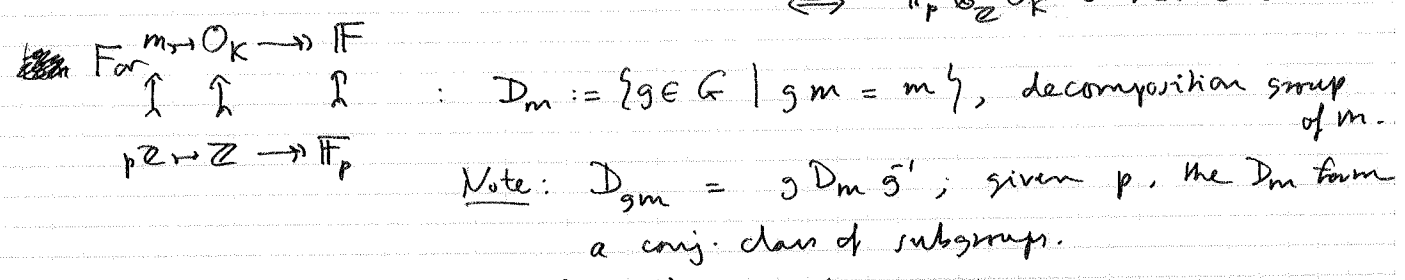 ⟺ 𝔽_p ⊗_ℤ O_K
For m ↣ O_K ↠ 𝔽
: D_m := {g ∈ G | g m = m}, decomposition group
of m.
pℤ ↣ ℤ ↠ 𝔽_p
Note: D_{gm} = g D_m g⁻¹; given p, the D_m form
a conj. class of subgroups.